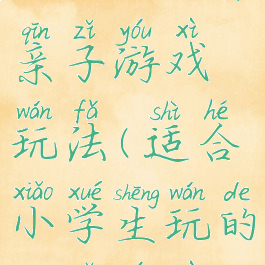 qīn zǐ yóu xì
亲子游戏
wán fǎ shì hé
玩法(适合
xiǎo xué shēng wán de
小学生玩的